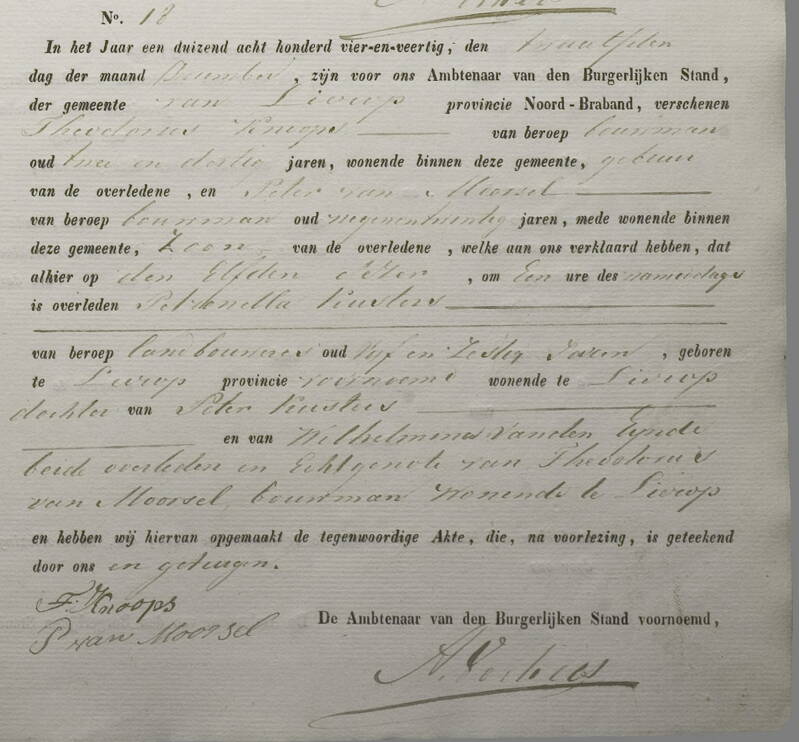 No. 18
In het Jaar een duizend acht honderd vier-en-veertig, den twaalfden
dag der maand December, zijn voor ons Ambtenaar van den Burgerlijken Stand,
der gemeente van Lierop provincie Noord-Braband, verschenen
Theodorus Knoops van beroep bouwman
oud twee en dertig jaren, wonende binnen deze gemeente, gebuur
van de overledene, en Peter van Moorsel
van beroep bouwman oud negenentwintig jaren, mede wonende binnen
deze gemeente, Zoon van de overledene, welke aan ons verklaard hebben, dat
alhier op den Elfden dezer, om Een ure des namiddags
is overleden Petronella Kusters
van beroep landbouweres oud Vijf en Zestig Jaren, geboren
te Lierop provincie voornoemd wonende te Lierop
dochter van Peter Kusters
en van Wilhelmina Vanden Eynde
beide overleden en Echtgenote van Theodorus
van Moorsel, bouwman wonende te Lierop
en hebben wij hiervan opgemaakt de tegenwoordige Akte, die, na voorlezing, is geteekend
door ons en getuigen.
F: Knoops
P van Moorsel
De Ambtenaar van den Burgerlijken Stand voornoemd,